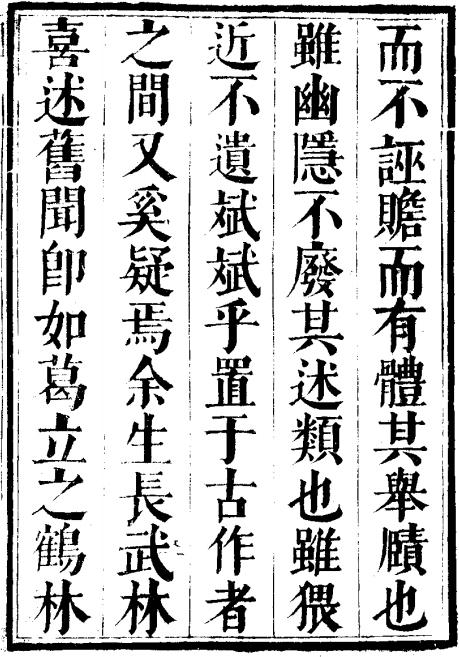 而不誣贍而有體其舉賾也
雖幽隱不廢其述類也雖猥
近不遺斌斌乎置于古作者
之間又奚疑焉余生長武林
喜述舊聞卽如葛立之鶴林